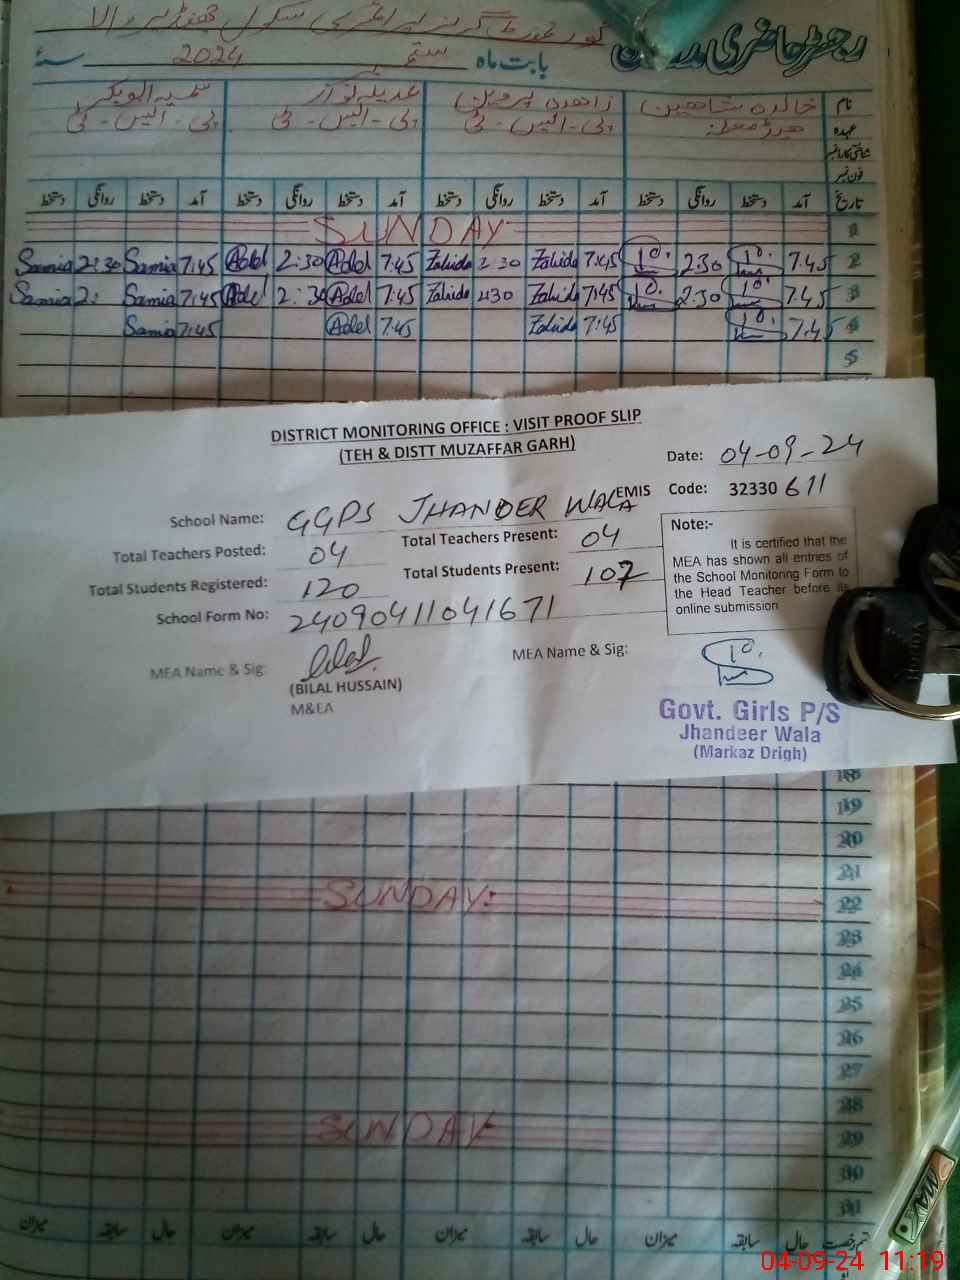 رجسٹر حاضری مدرسین
گورنمنٹ گرلز پرائمری سکول جھنڈیر والا
بابت ماہ ستمبر 2024 سنۂ
نام خالدہ شاہین زاھدہ پروین عدیلہ نواز سمیہ ابوبکر
عہدہ ہیڈ معلمہ پی-ایس-ٹی پی-ایس-ٹی پی-ایس-ٹی
شناختی کارڈ نمبر
فون نمبر
تاریخ آمد دستخط روانگی دستخط آمد دستخط روانگی دستخط آمد دستخط روانگی دستخط آمد دستخط روانگی دستخط
1 SUNDAY
Samia 2:30 Samia 7:45 Adel 2:30 Adel 7:45 Zahida 2:30 Zahida 7:45 2:30 7:45 2
Samia 2: Samia 7:45 Adel 2:30 Adel 7:45 Zahida 2:30 Zahida 7:45 2:30 7:45 3
Samia 7:45 Adel 7:45 Zahida 7:45 7:45 4
5
DISTRICT MONITORING OFFICE : VISIT PROOF SLIP
(TEH & DISTT MUZAFFAR GARH)
Date: 04-09-24
School Name: GGPS JHANDER WALA
EMIS Code: 32330 611
Total Teachers Posted: 04 Total Teachers Present: 04
Total Students Registered: 120 Total Students Present: 107
School Form No: 24090411041671
Note:-
It is certified that the
MEA has shown all entries of
the School Monitoring Form to
the Head Teacher before its
online submission
MEA Name & Sig: MEA Name & Sig:
(BILAL HUSSAIN)
M&EA
Govt. Girls P/S
Jhandeer Wala
(Markaz Drigh)
18
19
20
21
SUNDAY: 22
23
24
25
26
27
28
SUNDAY 29
30
31
حال سابقہ میزان حال سابقہ میزان حال سابقہ میزان حال سابقہ میزان
MAX
04-09-24 11:19